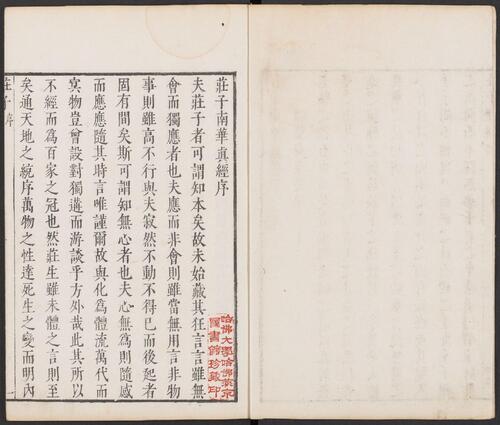 莊子南華真經序
夫莊子者可謂知本矣故未始藏其狂言言雖無
會而獨應者也夫應而非會則雖當無用言非物
事則雖高不行與夫寂然不動不得已而後起者
固有間矣斯可謂知無心者也夫心無為則隨感
而應應隨其時言唯謹爾故與化為體流萬代而
冥物豈曾設對獨遘而游談乎方外哉此其所以
不經而為百家之冠也然莊生雖未體之言則至
矣通天地之統序萬物之性達死生之變而明內
莊子序
一
哈佛大學哈佛燕京
圖書館珍藏印